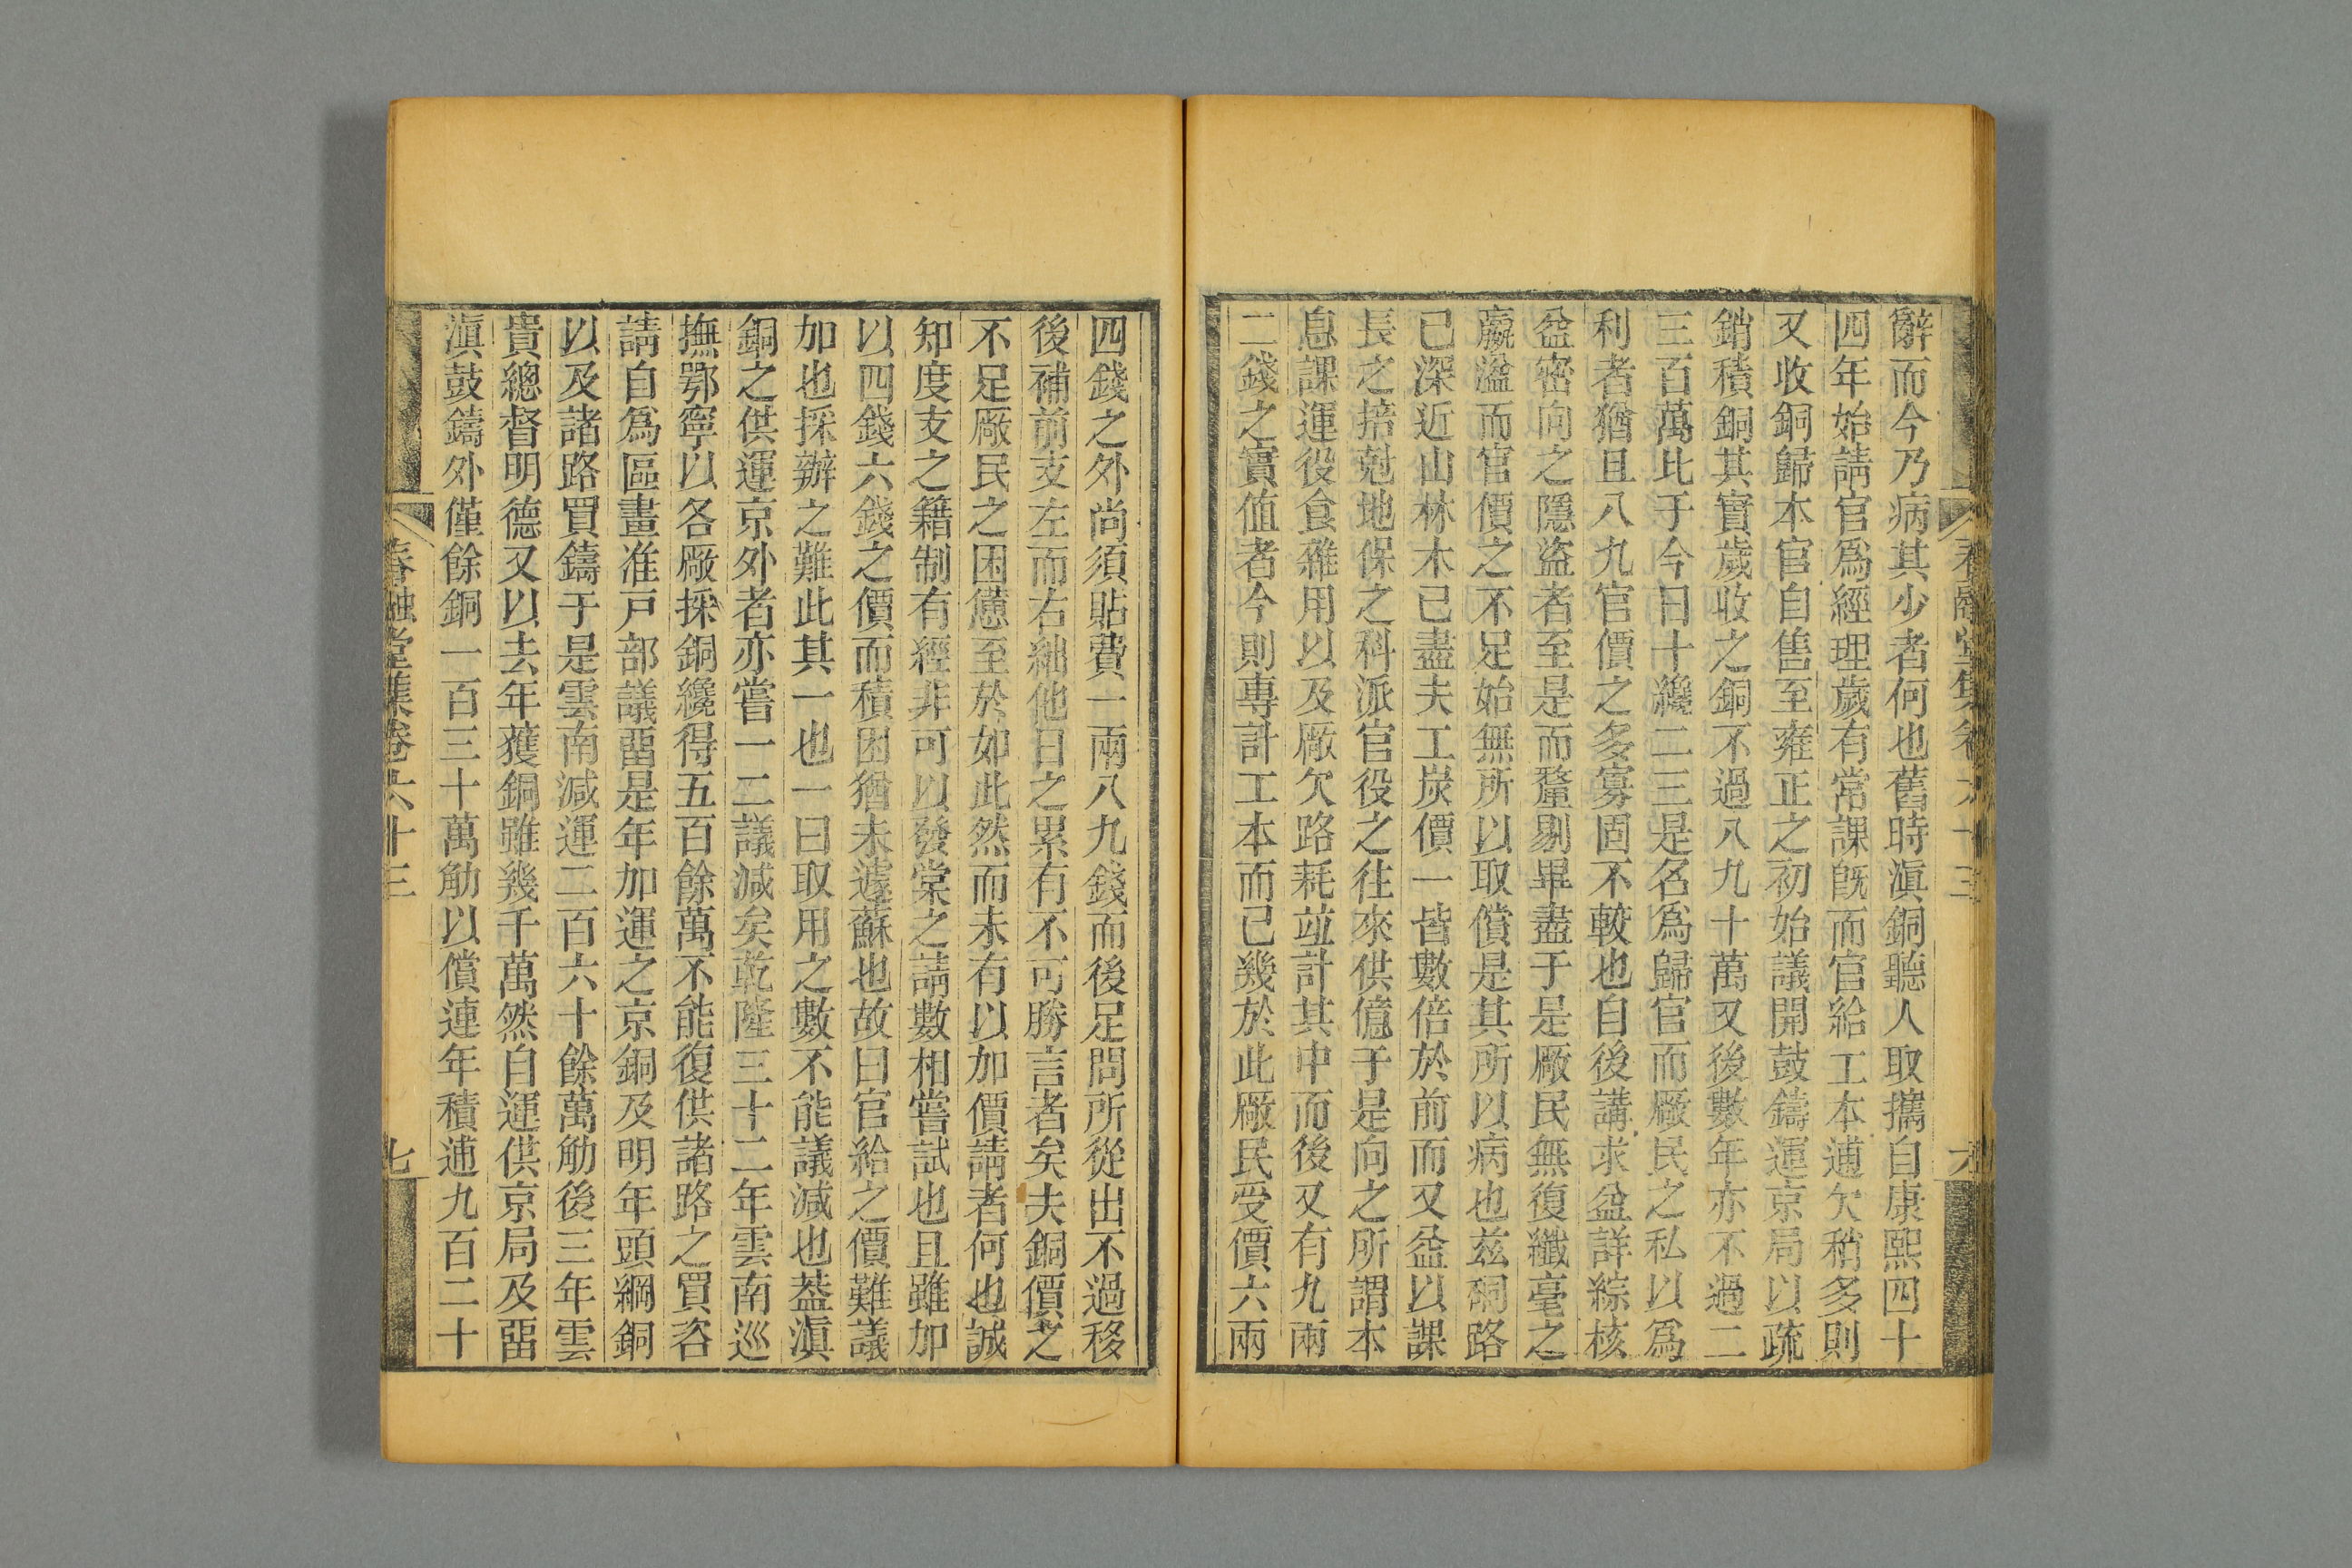 辭而今乃病其少者何也舊時滇銅聽人取攜自康熙四十
四年始請官爲經理歲有常課旣而官給工本逋欠稍多則
又收銅歸本官自售至雍正之初始議開鼓鑄運京局以疏
銷積銅其實歲收之銅不過八九十萬又後數年亦不過二
三百萬比于今日十纔二三是名爲歸官而厰民之私以爲
利者猶且八九官價之多寡固不較也自後講求益詳綜核
益密向之隱盜者至是而釐剔畢盡于是厰民無復纖毫之
嬴溢而官價之不足始無所以取償是其所以病也茲硐路
已深近山林木已盡夫工炭價一皆數倍於前而又益以課
長之掊尅地保之科派官役之往來供億于是向之所謂本
息課運役食雜用以及厰欠路耗竝計其中而後又有九兩
二錢之實值者今則專計工本而已幾於此厰民受價六兩
四錢之外尚須貼費一兩八九錢而後足問所從出不過移
後補前支左而右絀他日之累有不可勝言者矣夫銅價之
不足厰民之困憊至於如此然而未有以加價請者何也誠
知度支之籍制有經非可以發棠之請數相嘗試也且雖加
以四錢六錢之價而積困猶未遽蘇也故曰官給之價難議
加也採辦之難此其一也一曰取用之數不能議減也葢滇
銅之供運京外者亦嘗一二議減矣乾隆三十二年雲南巡
撫鄂寧以各厰採銅纔得五百餘萬不能復供諸路之買咨
請自爲區畫准戸部議畱是年加運之京銅及明年頭綱銅
以及諸路買鑄于是雲南減運二百六十餘萬觔後三年雲
貴總督明德又以去年獲銅雖幾千萬然自運供京局及畱
滇鼓鑄外僅餘銅一百三十萬觔以償連年積逋九百二十
春融堂集卷六十三
七